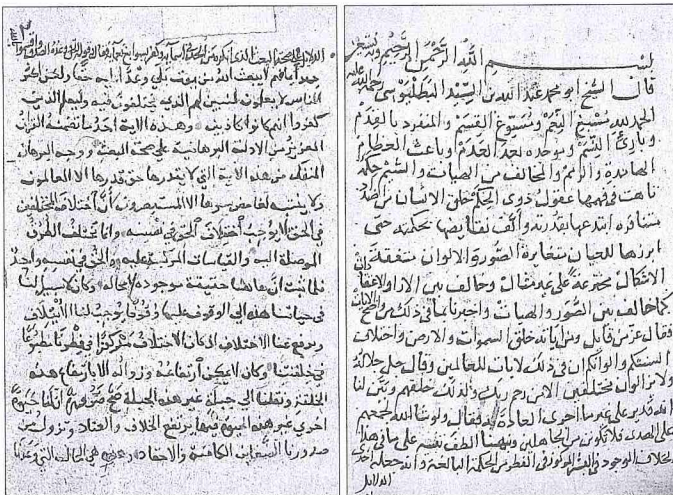 بســـم الله الرحمن الرحيم وبه نستعين
قال الشيخ ابو محمد عبد الله بن السيد البطليوسي رحمة الله عليه
الحمد لله مسبغ النعم ومسوغ القسم والمنفرد بالقدم
وبارئ النسم وموجده بعد العدم وباعث العظام
الهامدة والرمم والمخالف بين الهيات والشيم حكمة
تاهت في فهمها عقول ذوي الحكم خلق الانسان من اضداد
متنافره ابتدعها بقدرته والف نقايضها بحكمته حتى
ابرزها للعيان متغايرة الصور والالوان متفقة
الاشكال مخترعة على غير مثال وخالف بين الارا والاعتقادات
كما خالف بين الصور والهيات واخبرنا بما في ذلك من واضح الايات
فقال عز من قايل ومن اياته خلق السموات والارض واختلاف
السنتكم والوانكم ان في ذلك لايات للعالمين وقال جل جلاله
ولا يزالون مختلفين الا من رحم ربك ولذلك خلقهم وبين لنا
انه قدير على غير ما اجرى العادة به فقال ولو شا الله لجمعهم
على الهدى فلا تكونن من الجاهلين ونبهنا الطف تنبيه على ما في هذا
الخلاف الموجود في البشر المركوز في الفطر من الحكمة البالغة وانه جعله احدى
الدلايل
٢
الدلايل على صحة البعث الذي انكره من واقسموا
جهد ايمانهم لا يبعث الله من يموت بلى وعدا عليه حقا ولكن اكثر
الناس لا يعلمون ليبين لهم الذي يختلفون فيه وليعلم الذين
كفروا انهم كانوا كاذبين وهذه الاية احد ما تضمنه القران
العزيز من الادلة البرهانية على صحة البعث ووجه البرهان
المنفك من هذه الاية التي لا يقدرها حق قدرها الا العالمون
ولا ينتبه لغامض سرها الا المستبصرون أن اختلاف المختلفين
في الحق لا يوجب اختلاف الحق في نفسه وانما تختلف الطرق
الموصلة اليه والقياسات المركبة عليه والحق في نفسه واحد
فلما ثبت ان هاهنا حقيقة موجودة لا محالة وكان لا سبيل لنا
في حياتنا هذه الى الوقوف عليها وقوفا يوجب لنا الايتلاف
ويرفع عنا الاختلاف اذ كان الاختلاف مركوزا في فطرنا مطبوعا
في خلقتنا وكان لا يمكن ارتفاعه وزواله الا بارتفاع هذه
الخلقة ونقلنا الى جبلة غير هذه الجبلة صح ضرورة ان لنا حيوة
اخرى غير هذه الحيوة فيها يرتفع الخلاف والعناد وتزول من
صدورنا الضغاين الكامنة والاحقاد وهذه هي الحال التي وعدنا